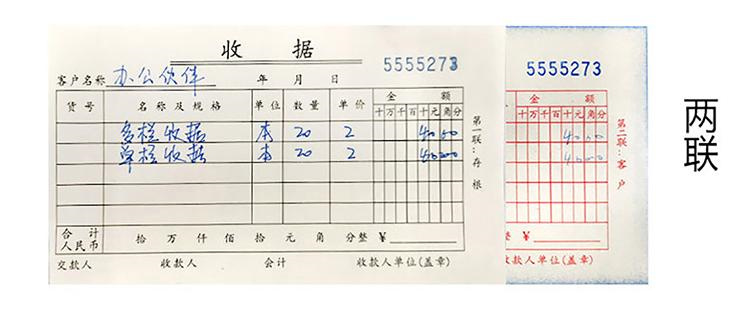 收 据
5555273
客户名称 办公伙伴 年 月 日
货号 名称及规格 单位 数量 单价 金额
十 万 千 百 十 元 角 分
多栏收据 本 20 2 4000
单栏收据 本 20 2 4000
合计人民币 拾 万 仟 佰 拾 元 角 分整 ¥
交款人 收款人 会计 收款人单位(盖章)
第一联:存根
5555273
金额
十 万 千 百 十 元 角 分
4000
4000
整 ¥
款人单位(盖章)
第二联:客户
两联